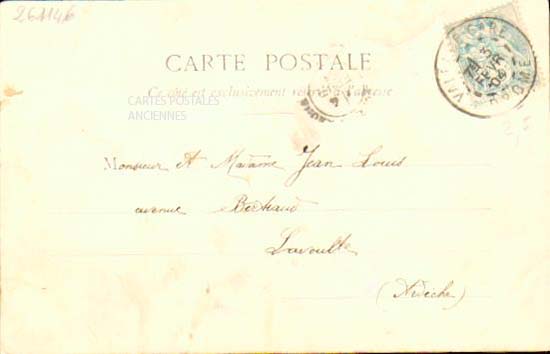 261146
CARTE POSTALE
Ce côté est exclusivement réservé à l'adresse
CARTES POSTALES
ANCIENNES
Monsieur et Madame Jean Louis
avenue Bertrand
Lavoulte
(Ardèche)